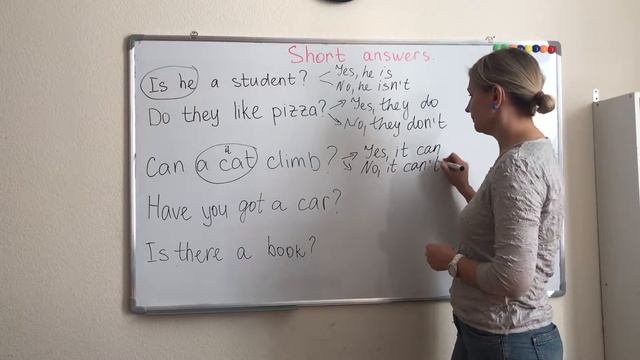 Short answers.
Is he a student? Yes, he is
No, he isn't
Do they like pizza? Yes, they do
No, they don't
it
Can a cat climb? Yes, it can
No, it can't
Have you got a car?
Is there a book?